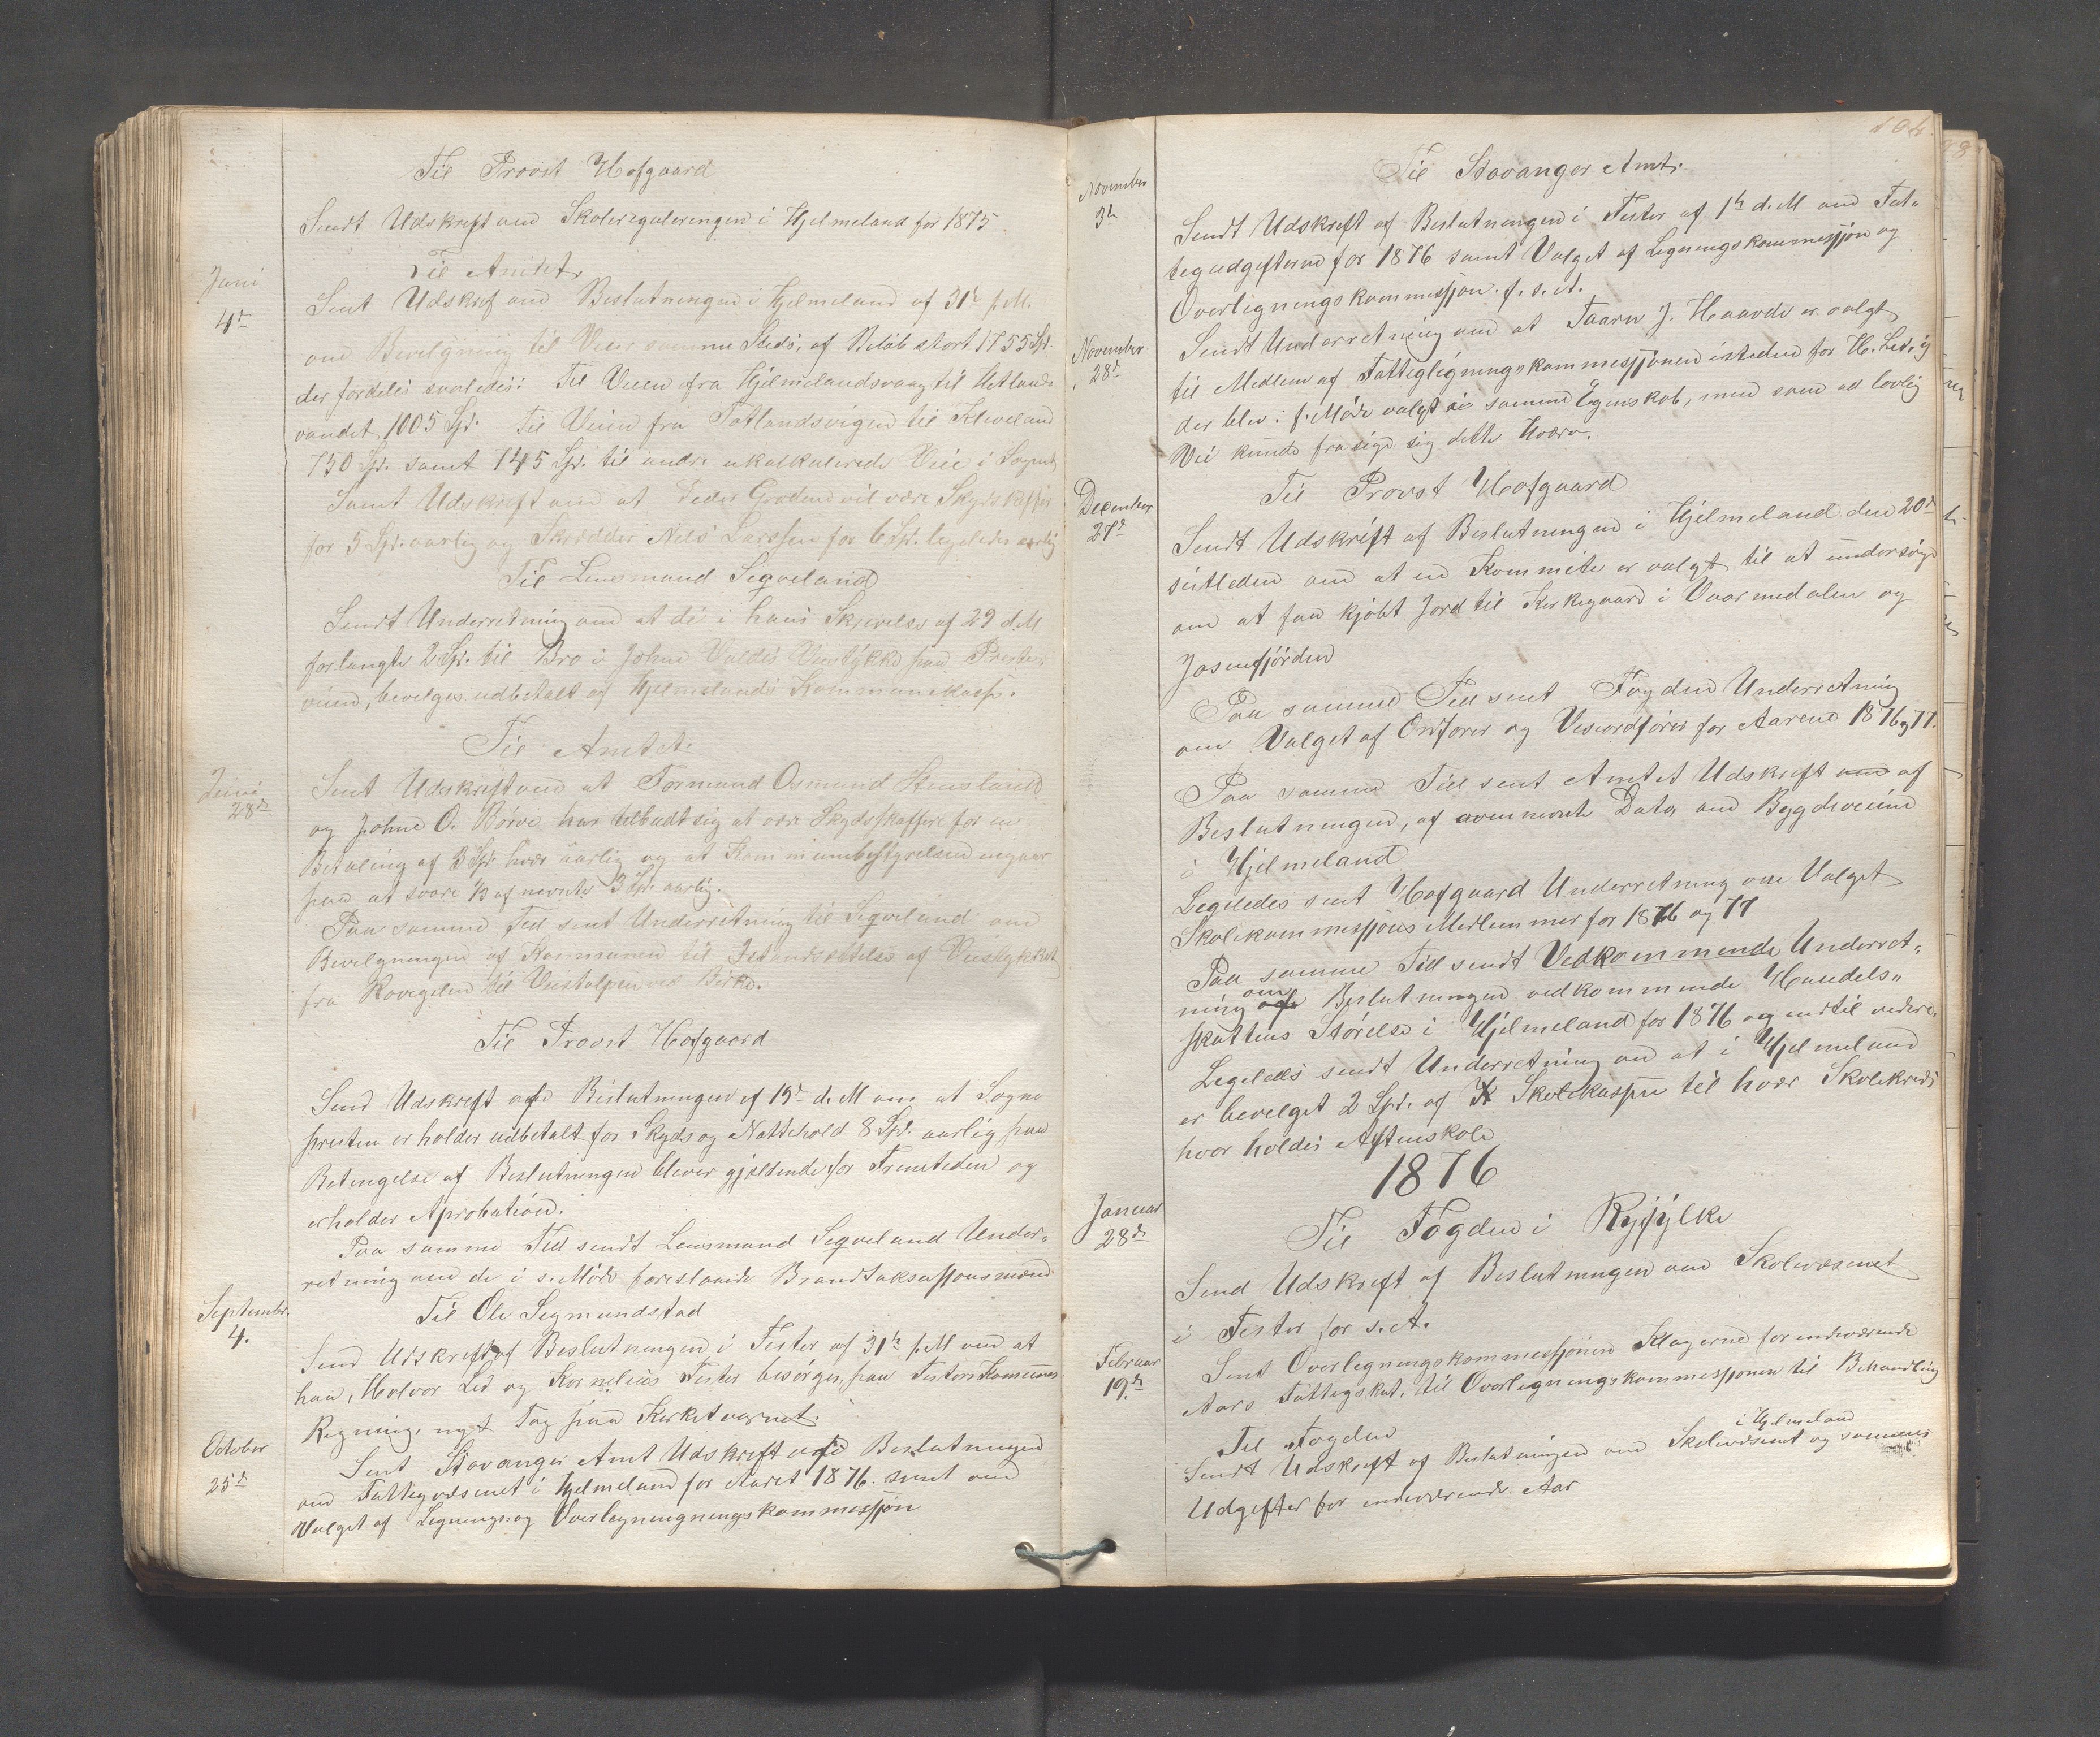 Til Provst Hofgaard
Sendt Udskrift om Skolereguleringen i Hjelmeland for 1875
Til Amtet.
Juni
4de
Sent Udskrif om Beslutningen i Hjelmeland af 31te f.M.
om Bevelgning til Veier samme Steds, af Beløb stort 1755 Spd.
der fordeles saaledes: Til Veien ifra Hjelmelandsvaag til Hetlands
vandet 1005 Spd. Til Veien fra Tøtlandsvigen til Kleveland
750 Spd. samt 145 Spd. til andre ukalkulerede Veie i Sognet
Samt Udskrift om at Peder Groden vil være Skydsskaffer
for 5 Spd. aarlig og Skredder Nels Larssen for 6 Spd. legeledes aarlig
Til Lensmand Segveland
Sendt Underretning om at de i hans Skrivelse af 29 d.M
forlangte 2 Spd. til Bro i Johne Valdes Veistykke paa Preste
veien, bevelges udbetalt af Hjelmelands Kommunekasse.
Til Amtet.
Juni
28de
Sent Udskrift om at Formand Osmund Stensland
og Johne O. Børve har tilbudt sig at vær Skydsskaffere for en
Betaling af 3 Spd. hver aarlig og at Kommunebestyrelsen ingaar
paa at svare 1/3 af nevnte 3 Spd. aarlig.
Paa samme Tid sent Underretning til Segveland om
Bevelgningen af Kommunen til Istandsettelse af Veistykket
fra Rovegelen til Veistolpen ved Birke.
Til Provst Hofgaard
Send Udskreft af Beslutningen af 19de d.M om at Sogne
presten erholder udbetalt for Skyds og Nattehold 8 Spd. aarlig paa
Betengelse af Beslutningen blever gjældende for Fremteden og
erholder Aprobation.
Paa samme Tid sendt Lensmand Segveland Under„
retning om de i s. Møde foreslaaede Brandtaksasjonsmænd
Til Ole Segmundstad
September
4.
Send Udskreft af Beslutningen i Fester af 31te f.M om at
han, Halvor Lid og Kornelius Fister besørger, paa Festers Komunes
Regning, nyt Tag paa Kerketaarnet.
October
25de
Sent Stavanger Amt Udskreft af Beslutningen
om Fattegvæsenet i Hjelmeland for Aaret 1876. samt om
Valget af Legnings og Overlegnengnengskommessjon
104.
Til Stavanger Amt.
November
3de
Sendt Udskreft af Beslutningen i Fester af 1te d.M om Fat„
tegudgifterne for 1876 samt Valget af Legnengskommessjon og
Overlignengskommessjon f.s.A.
November
28de
Sendt Underretning om at Taarn J. Haavde er valgt
til Medlem af Fatteglignengskommessjonen isteden for H. Led, ig
der blev i f. Møde valgt i samme Egenskab, men som ad lovlig
Vei kunde frasige sig dette Hverv.
Til Provst Hofgaard
December
27de
Sendt Udskrift af Beslutningen i Hjelmeland den 20de
sistleden om at en Kommite er valgt til at undersøge
om at faa kjøbt Jord til Kerkegaard i Vaarmedalen og
Jøsenfjorden
Paa samme Tid sent Fogden Underretning
om Valget af Orfører og Viseordfører for Aarene 1876 og 77.
Paa samme Tid sent Amtet Udskreft om af
Beslutningen, af ovennevnte Data om Bygdeveiene
i Hjelmeland
Legeledes sent Hofgaard Underretning om Valget
Skolekommessjons Medlemmer for 1876 og 77
Paa samme Tid sendt Vedkommende Underret„
ning om Beslutningen vedkommende Handels„
skattens Størelse i Hjelmeland for 1876 og indtil videre.
Legeledes sendt Underretning om at i Hjelmeland
er bevelget 2 Spd. af Skolekassen til hver Skolekreds
hvor holdes Aftenskole
1876
Til Fogden i Ryfylke
Januar
28de
Send Udskreft af Beslutningen om Skolevæsenet
i Fister for s.A.
Februar
19de
Sent Overlegnengskommessjonen Klagerne for indeværende
Aars Fattegskat, til Overlegnengskommessjonen til Behandling
Til Fogden
Sendt Udskreft af Beslutningen om Skolevæsenet i Hjelmeland og sammes
Udgefter for endeværende Aar